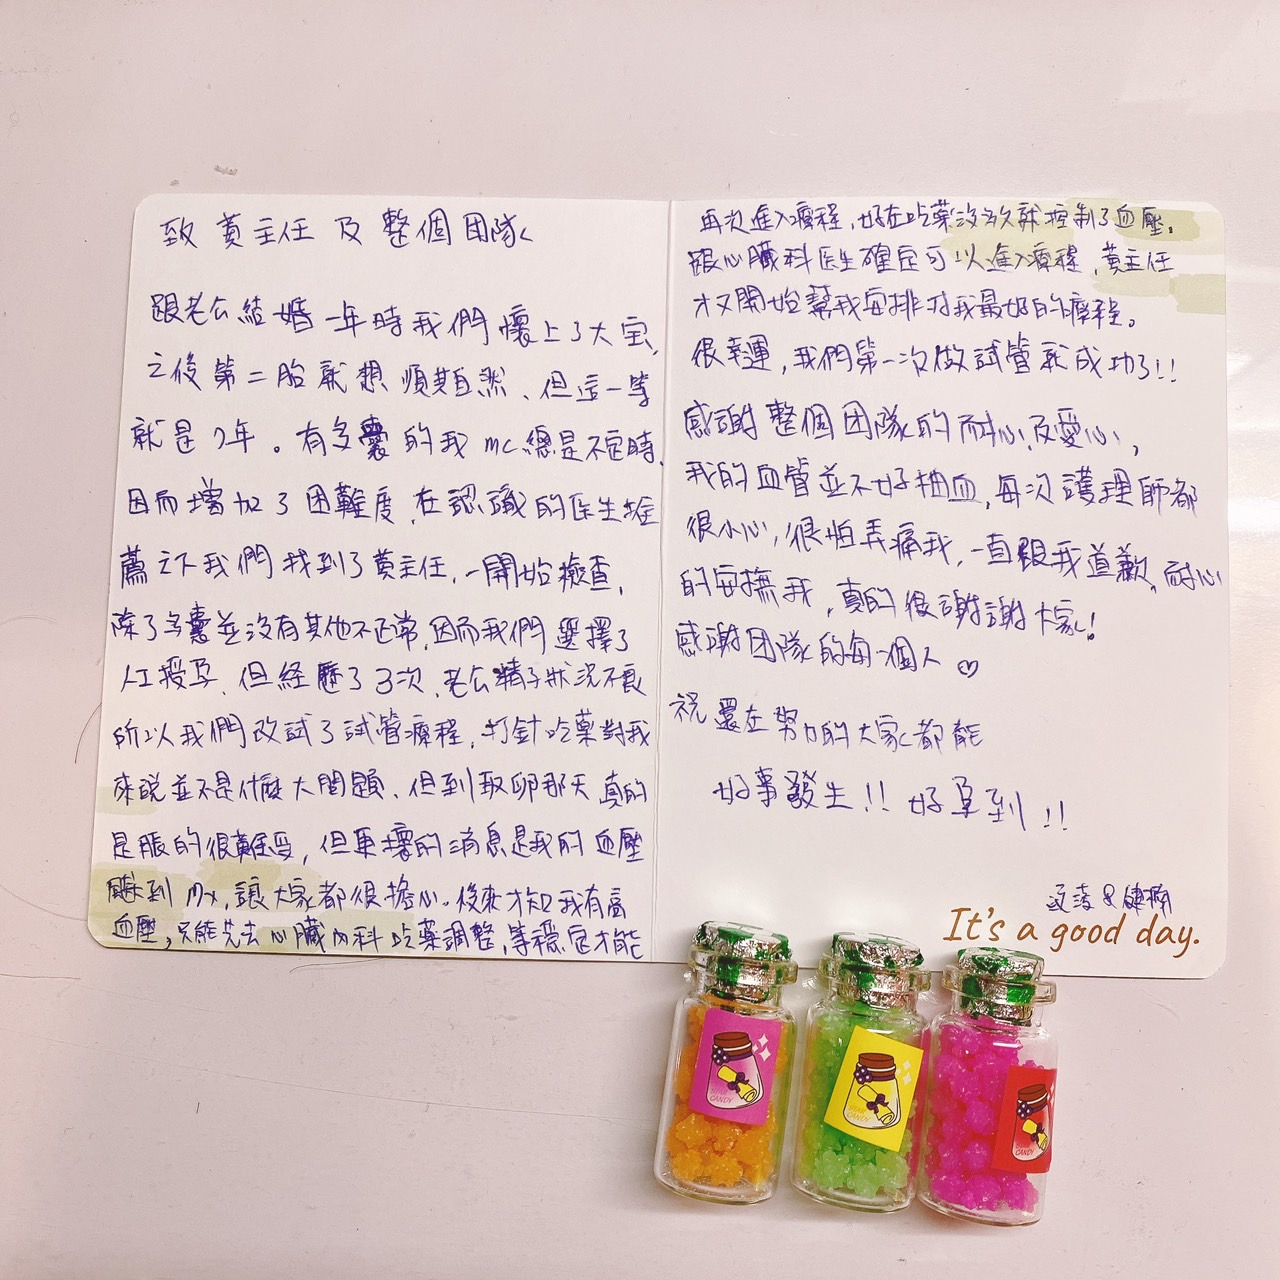 致 黃主任 及 整個團隊
跟老公結婚一年時我們懷上了大宝,
之後第二胎就想順其自然、但這一等
就是7年。有多囊的我 mc總是不定時,
因而增加了困難度,在認識的医生推
薦之下我們找到了黃主任,一開始檢查,
除了多囊並沒有其他不正常,因而我們選擇了
人工授孕、但経歷了3次、老公精子狀況不良
所以我們改試了試管療程,打針吃藥對我
來說並不是什麼大問題、但到取卵那天真的
是脹的很難受,但更壞的消息是我的血壓
飆到 mx,讓大家都很擔心、後來才知我有高
血壓,只能先去心臟內科吃藥調整,等穩定才能
再次進入療程,好在吃藥沒多久就控制了血壓。
跟心臟科医生確定可以進入療程,黃主任
才又開始幫我安排对我最好的療程。
很幸運,我們第一次做試管就成功了!!
感謝整個团隊的耐心及愛心,
我的血管並不好抽血,每次護理師都
很小心,很怕弄痛我,一直跟我道歉,耐心
的安撫我,真的很謝謝大家!
感謝团隊的每一個人♡
祝還在努力的大家都能
好事發生!! 好孕到!!
It's a good day.
CANDY
CANDY
CANDY